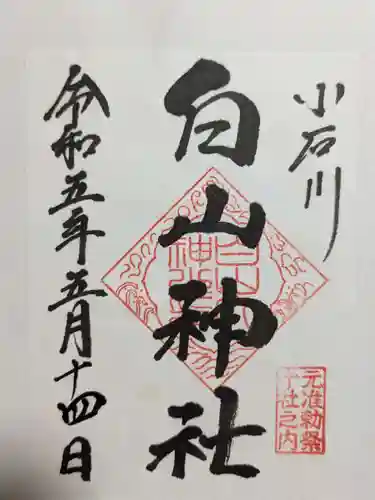 小石川
白山神社
令和五年五月十四日
元准勅祭
十社之内
白山
神社